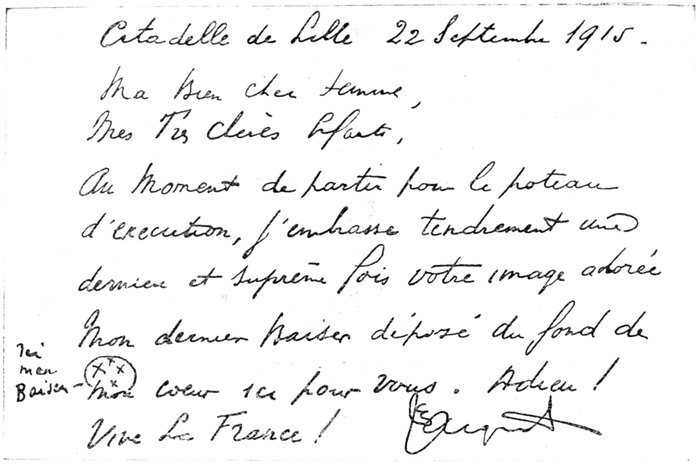 Citadelle de Lille 22 Septembre 1915.
Ma Bien cher femme,
Mes Tres chères Enfants,
Au Moment de partir pour le poteau
d'execution, j'embrasse tendrement une
derniere et suprême fois votre image adorée
Mon dernier Baiser déposé du fond de
Mon coeur ici pour vous. Adieu!
Vive La France!
Ici
mon
Baiser -